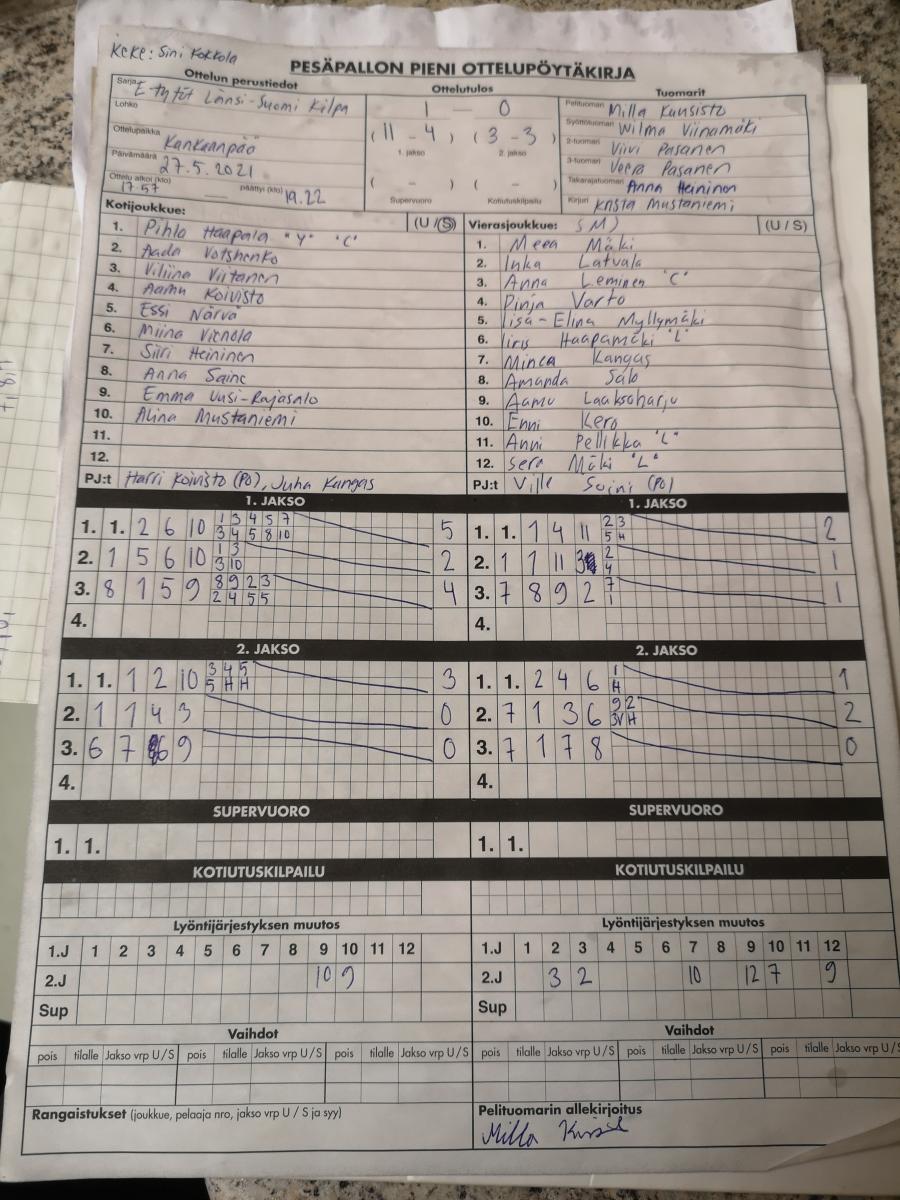 KeKe: Sini Kokkola
PESÄPALLON PIENI OTTELUPÖYTÄKIRJA
Ottelun perustiedot
Ottelutulos
Tuomarit
Sarja E tytöt Länsi-Suomi Kilpa
Lohko
Ottelupaikka Kankaanpää
Päivämäärä 27.5.2021
Ottelu alkoi (klo) 17.57 päättyi (klo) 19.22
1 — 0
( 11 - 4 ) ( 3 - 3 )
1. jakso 2. jakso
( - ) ( - )
Supervuoro Kotiutuskilpailu
Pelituomari Milla Kuusisto
Syöttötuomari Wilma Viinamäki
2-tuomari Viivi Pasanen
3-tuomari Veera Pasanen
Takarajatuomari Anna Heininen
Kirjuri Krista Mustaniemi
Kotijoukkue: (U / S)
1. Pihla Haapala "Y" "C"
2. Aada Votshenko
3. Viliina Viitanen
4. Aamu Koivisto
5. Essi Närvä
6. Miina Vienola
7. Siiri Heininen
8. Anna Saine
9. Emma Uusi-Rajasalo
10. Alina Mustaniemi
11.
12.
PJ:t Harri Koivisto (PO), Juha Kangas
Vierasjoukkue: SMJ (U / S)
1. Meea Mäki
2. Inka Latvala
3. Anna Leminen "C"
4. Pinja Varto
5. Iisa-Elina Myllymäki
6. Iiris Haapamäki "L"
7. Minea Kangas
8. Amanda Salo
9. Aamu Laaksoharju
10. Enni Kero
11. Anni Pellikka "L"
12. Sera Mäki "L"
PJ:t Ville Soini (PO)
1. JAKSO
1. 1. 2 6 10 1 3 4 5 7 5
3 4 5 8 10
2. 1 5 6 10 1 3 2
3 10
3. 8 1 5 9 8 9 2 3 4
2 4 5 5
4.
1. JAKSO
1. 1. 1 4 11 2 3 2
5 H
2. 1 1 11 3 2 1
4
3. 7 8 9 2 7 1
1
4.
2. JAKSO
1. 1. 1 2 10 3 4 5 3
5 H H
2. 1 1 4 3 0
3. 6 7 6 9 0
4.
2. JAKSO
1. 1. 2 4 6 1 1
H
2. 7 1 3 6 9 2 2
3V H
3. 7 1 7 8 0
4.
SUPERVUORO
1. 1.
SUPERVUORO
1. 1.
KOTIUTUSKILPAILU
KOTIUTUSKILPAILU
Lyöntijärjestyksen muutos
1.J 1 2 3 4 5 6 7 8 9 10 11 12
2.J 10 9
Sup
Lyöntijärjestyksen muutos
1.J 1 2 3 4 5 6 7 8 9 10 11 12
2.J 3 2 10 12 7 9
Sup
Vaihdot
pois tilalle Jakso vrp U / S pois tilalle Jakso vrp U / S pois tilalle Jakso vrp U / S
Vaihdot
pois tilalle Jakso vrp U / S pois tilalle Jakso vrp U / S pois tilalle Jakso vrp U / S
Rangaistukset (joukkue, pelaaja nro, jakso vrp U / S ja syy)
Pelituomarin allekirjoitus
Milla